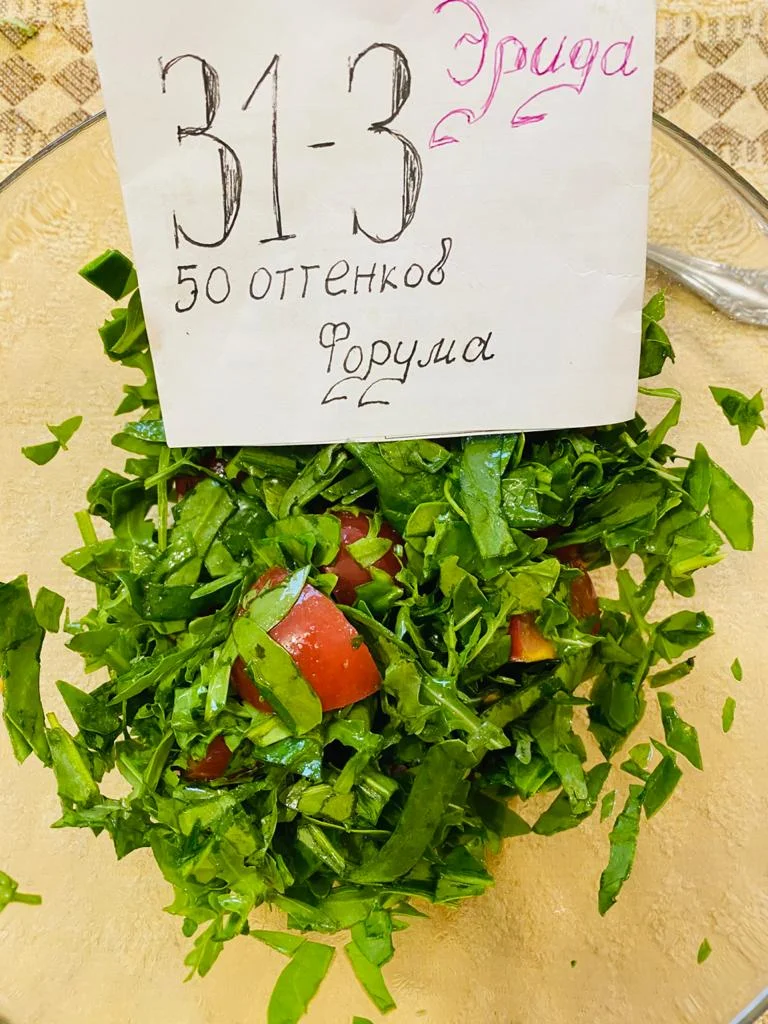 Эрида
31-3
50 оттенков
Форума